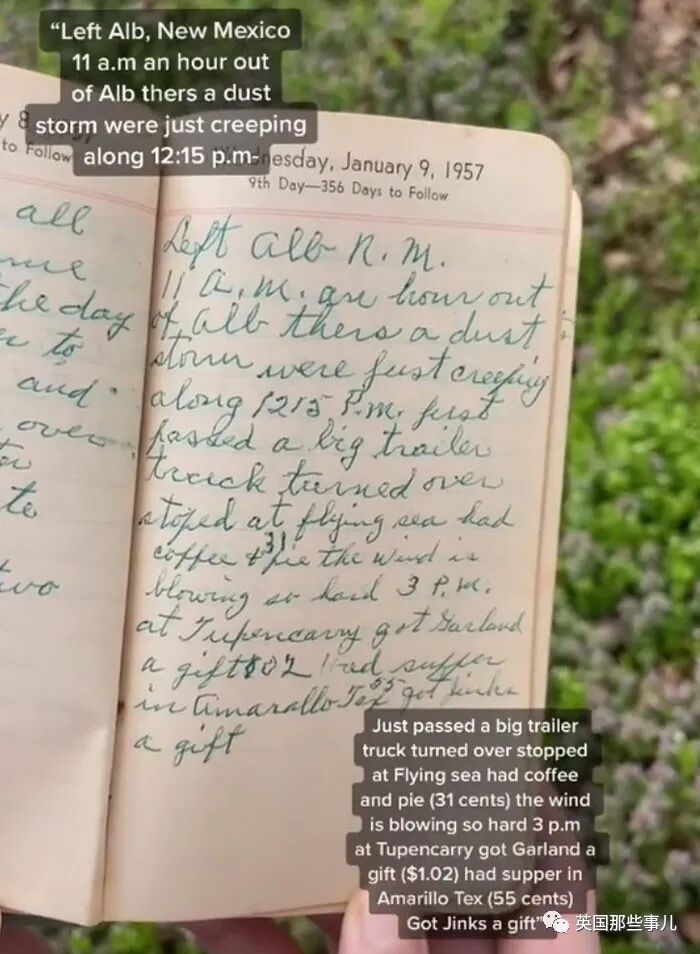 “Left Alb, New Mexico
11 a.m an hour out
of Alb thers a dust
storm were just creeping
along 12:15 p.m-
y 8
to Follow
all
me
the day
to
and
over
te
two
Wednesday, January 9, 1957
9th Day—356 Days to Follow
Left Alb N. M.
11 A.M. an hour out
of Alb thers a dust
storm were just creeping
along 1215 P.M. just
passed a big trailer
truck turned over
stoped at flying sea had
coffee & pie 31 the wind is
blowing so hard 3 P.M.
at Tupencarry got Garland
a gift $102 Had supper
in Amarallo Tex 55 got Jinks
a gift
Just passed a big trailer
truck turned over stopped
at Flying sea had coffee
and pie (31 cents) the wind
is blowing so hard 3 p.m
at Tupencarry got Garland a
gift ($1.02) had supper in
Amarillo Tex (55 cents)
Got Jinks a gift”
英国那些事儿